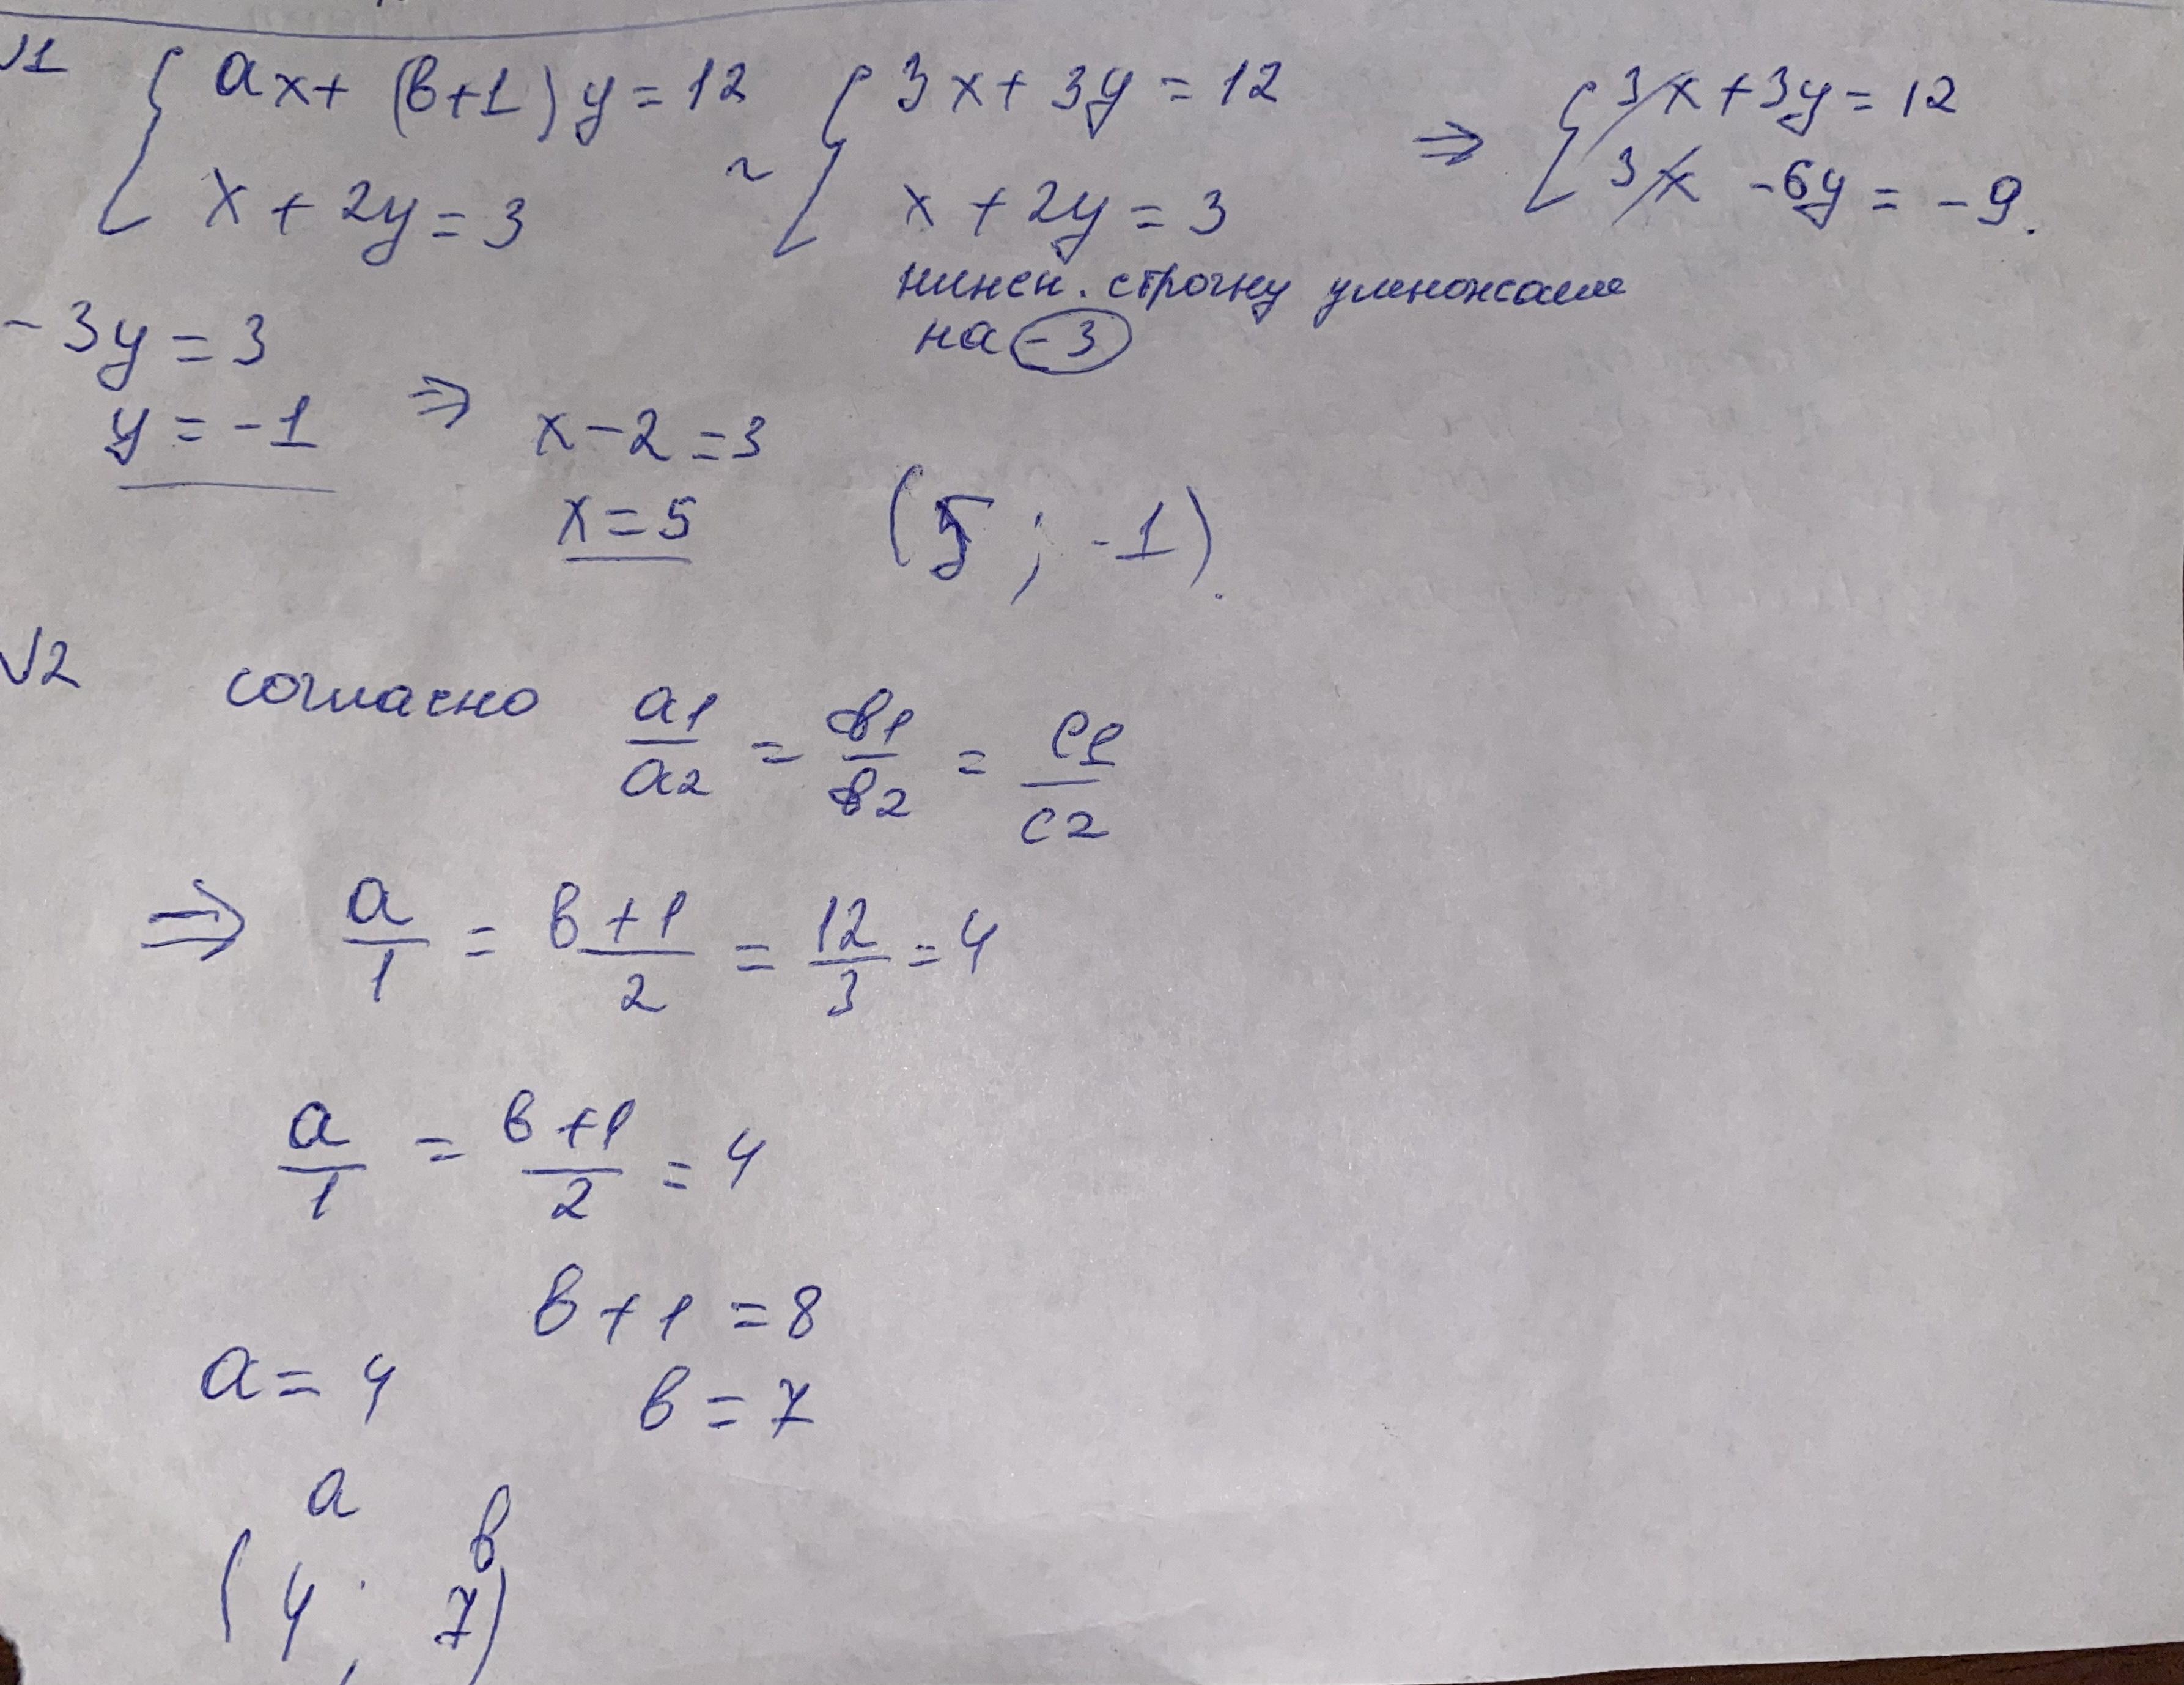 √1 { ax + (в+1) y = 12 ~ { 3x + 3y = 12 ⇒ { 3x + 3y = 12
x + 2y = 3 x + 2y = 3 3x - 6y = -9.
нижн. строчку умножаем
на -3
-3y = 3
y = -1 ⇒ x - 2 = 3
x = 5 (5 ; -1).
√2 согласно a1/a2 = в1/в2 = c1/c2
⇒ a/1 = в+1/2 = 12/3 = 4
a/1 = в+1/2 = 4
в + 1 = 8
a = 4 в = 7
a в
(4 ; 7)